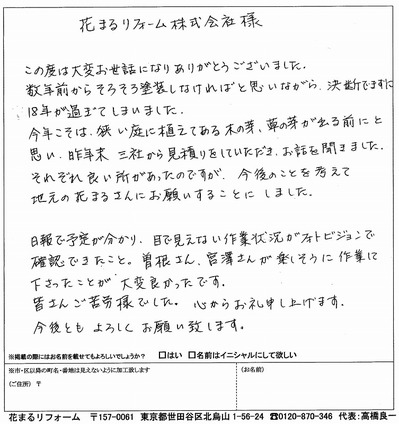 花まるリフォーム株式会社様
この度は大変お世話になりありがとうございました。
数年前からそろそろ塗装しなければと思いながら、決断できずに
18年が過ぎてしまいました。
今年こそは、狭い庭に植えてある木の芽、草の芽が出る前にと
思い、昨年末 三社から見積りをしていただき、お話を聞きました。
それぞれ良い所があったのですが、今後のことを考えて
地元の花まるさんにお願いすることに しました。
日報で予定が分かり、目で見えない作業状況がフォトビジョンで
確認できたこと。曽根さん、宮澤さんが楽しそうに作業して
下さったことが 大変良かったです。
皆さんご苦労様でした。心からお礼申し上げます。
今後とも よろしくお願い致します。
※掲載の際にはお名前を載せてもよろしいでしょうか? □はい □名前はイニシャルにして欲しい
※市・区以降の町名・番地は見えないように加工致します
(ご住所) 〒
(お名前)
花まるリフォーム 〒157-0061 東京都世田谷区北烏山1-56-24 ☎0120-870-346 代表:高橋良一